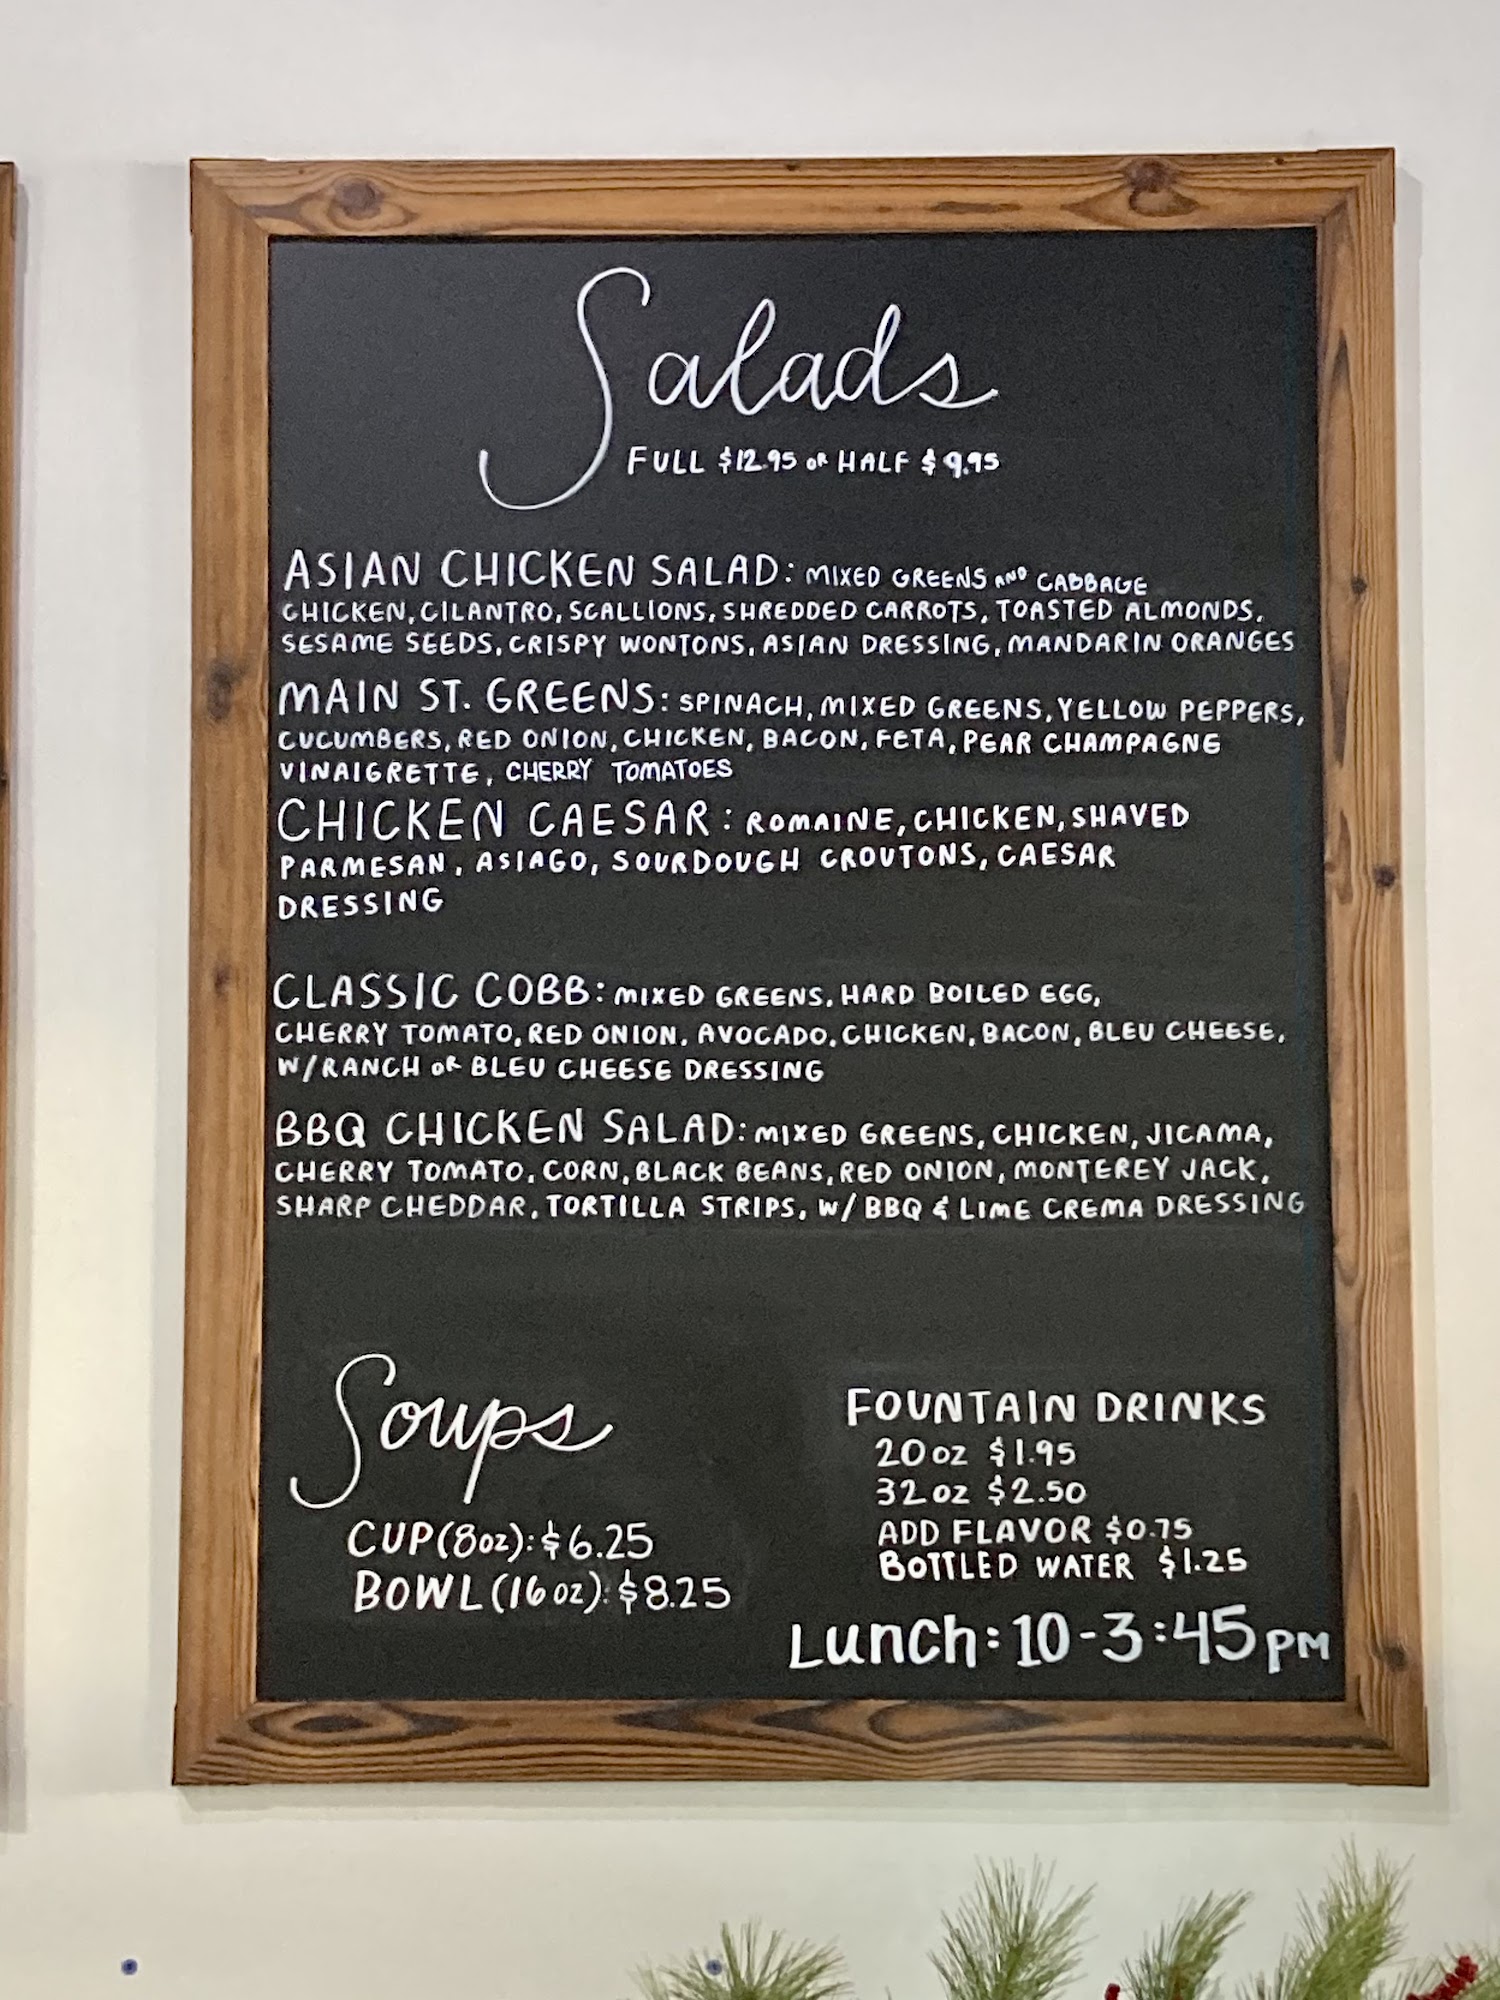 Salads
FULL $12.95 OR HALF $9.95
ASIAN CHICKEN SALAD: MIXED GREENS AND CABBAGE
CHICKEN, CILANTRO, SCALLIONS, SHREDDED CARROTS, TOASTED ALMONDS,
SESAME SEEDS, CRISPY WONTONS, ASIAN DRESSING, MANDARIN ORANGES
MAIN ST. GREENS: SPINACH, MIXED GREENS, YELLOW PEPPERS,
CUCUMBERS, RED ONION, CHICKEN, BACON, FETA, PEAR CHAMPAGNE
VINAIGRETTE, CHERRY TOMATOES
CHICKEN CAESAR: ROMAINE, CHICKEN, SHAVED
PARMESAN, ASIAGO, SOURDOUGH CROUTONS, CAESAR
DRESSING
CLASSIC COBB: MIXED GREENS, HARD BOILED EGG,
CHERRY TOMATO, RED ONION, AVOCADO, CHICKEN, BACON, BLEU CHEESE,
W/RANCH OR BLEU CHEESE DRESSING
BBQ CHICKEN SALAD: MIXED GREENS, CHICKEN, JICAMA,
CHERRY TOMATO, CORN, BLACK BEANS, RED ONION, MONTEREY JACK,
SHARP CHEDDAR, TORTILLA STRIPS, W/ BBQ & LIME CREMA DRESSING
Soups
CUP(8oz): $6.25
BOWL(16oz): $8.25
FOUNTAIN DRINKS
20 oz $1.95
32 oz $2.50
ADD FLAVOR $0.75
BOTTLED WATER $1.25
Lunch: 10-3:45PM